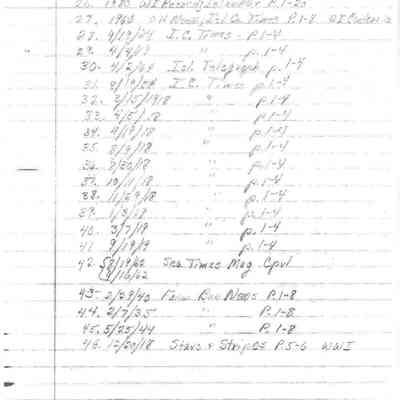 26. 1980 WI Record p.1-20
27. 1968 Times P.1-8
28. 9/19/24 I.C. Times - p.1-4
29. 4/4/19 " p.1-4
30. 4/2/64 Isl. Telegraph p.1-4
31. I.C. Times p.1-4
32. 3/15/1918 " p.1-4
33. 4/5/18 " p.1-4
34. 4/19/18 " p.1-4
35. 8/9/18 " p.1-4
36. 8/30/18 " p.1-4
37. 10/11/18 " p.1-4
38. 11/29/18 " p.1-4
39. 1/3/18 " p.1-4
40. 3/7/19 " p.1-4
41. 9/19/19 " p.1-4
42. 8/19/62 Sea. Times Mag.
9/16/62
43. 2/29/40 Farm Bur. News P.1-8
44. 2/7/35 " P.1-8
45. 5/25/44 " P.1-8
46. 12/20/18 Stars & Stripes P.5-6 WWI